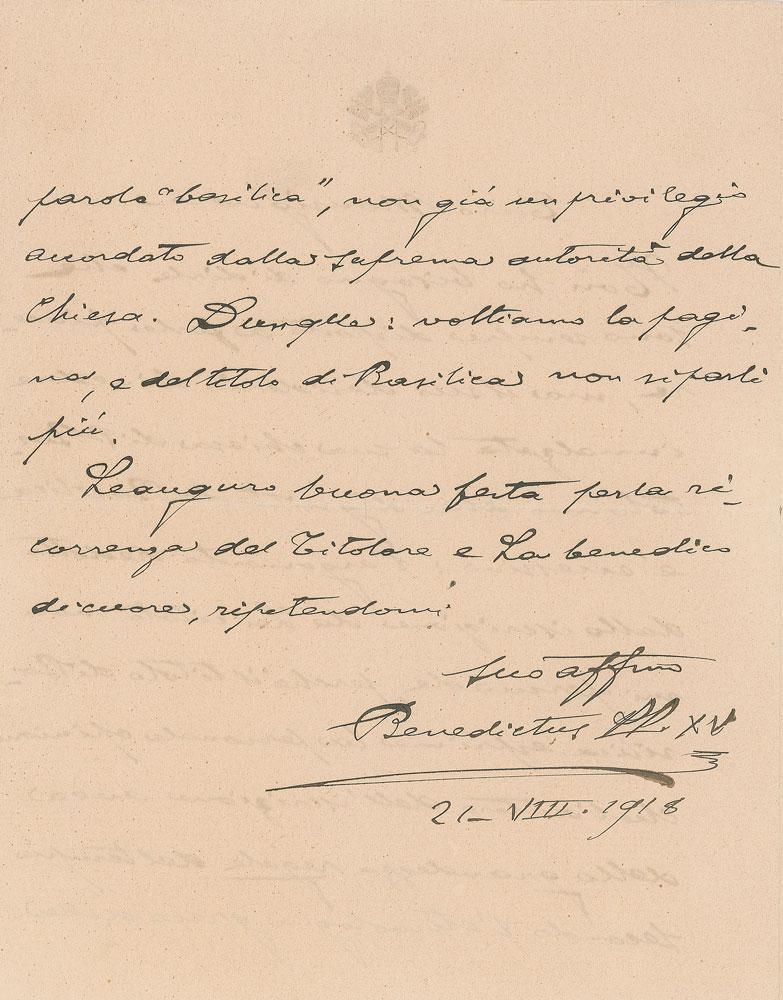 parola "basilica", non già un privilegio
accordato dalla suprema autorità della
Chiesa. Dunque: voltiamo la pagi-
na, e del titolo di Basilica non si parli
più.
Le auguro buona festa per la ri-
correnza del Titolare e La benedico
di cuore, ripetendomi
suo affmo
Benedictus PP. XV
21-VIII. 1918